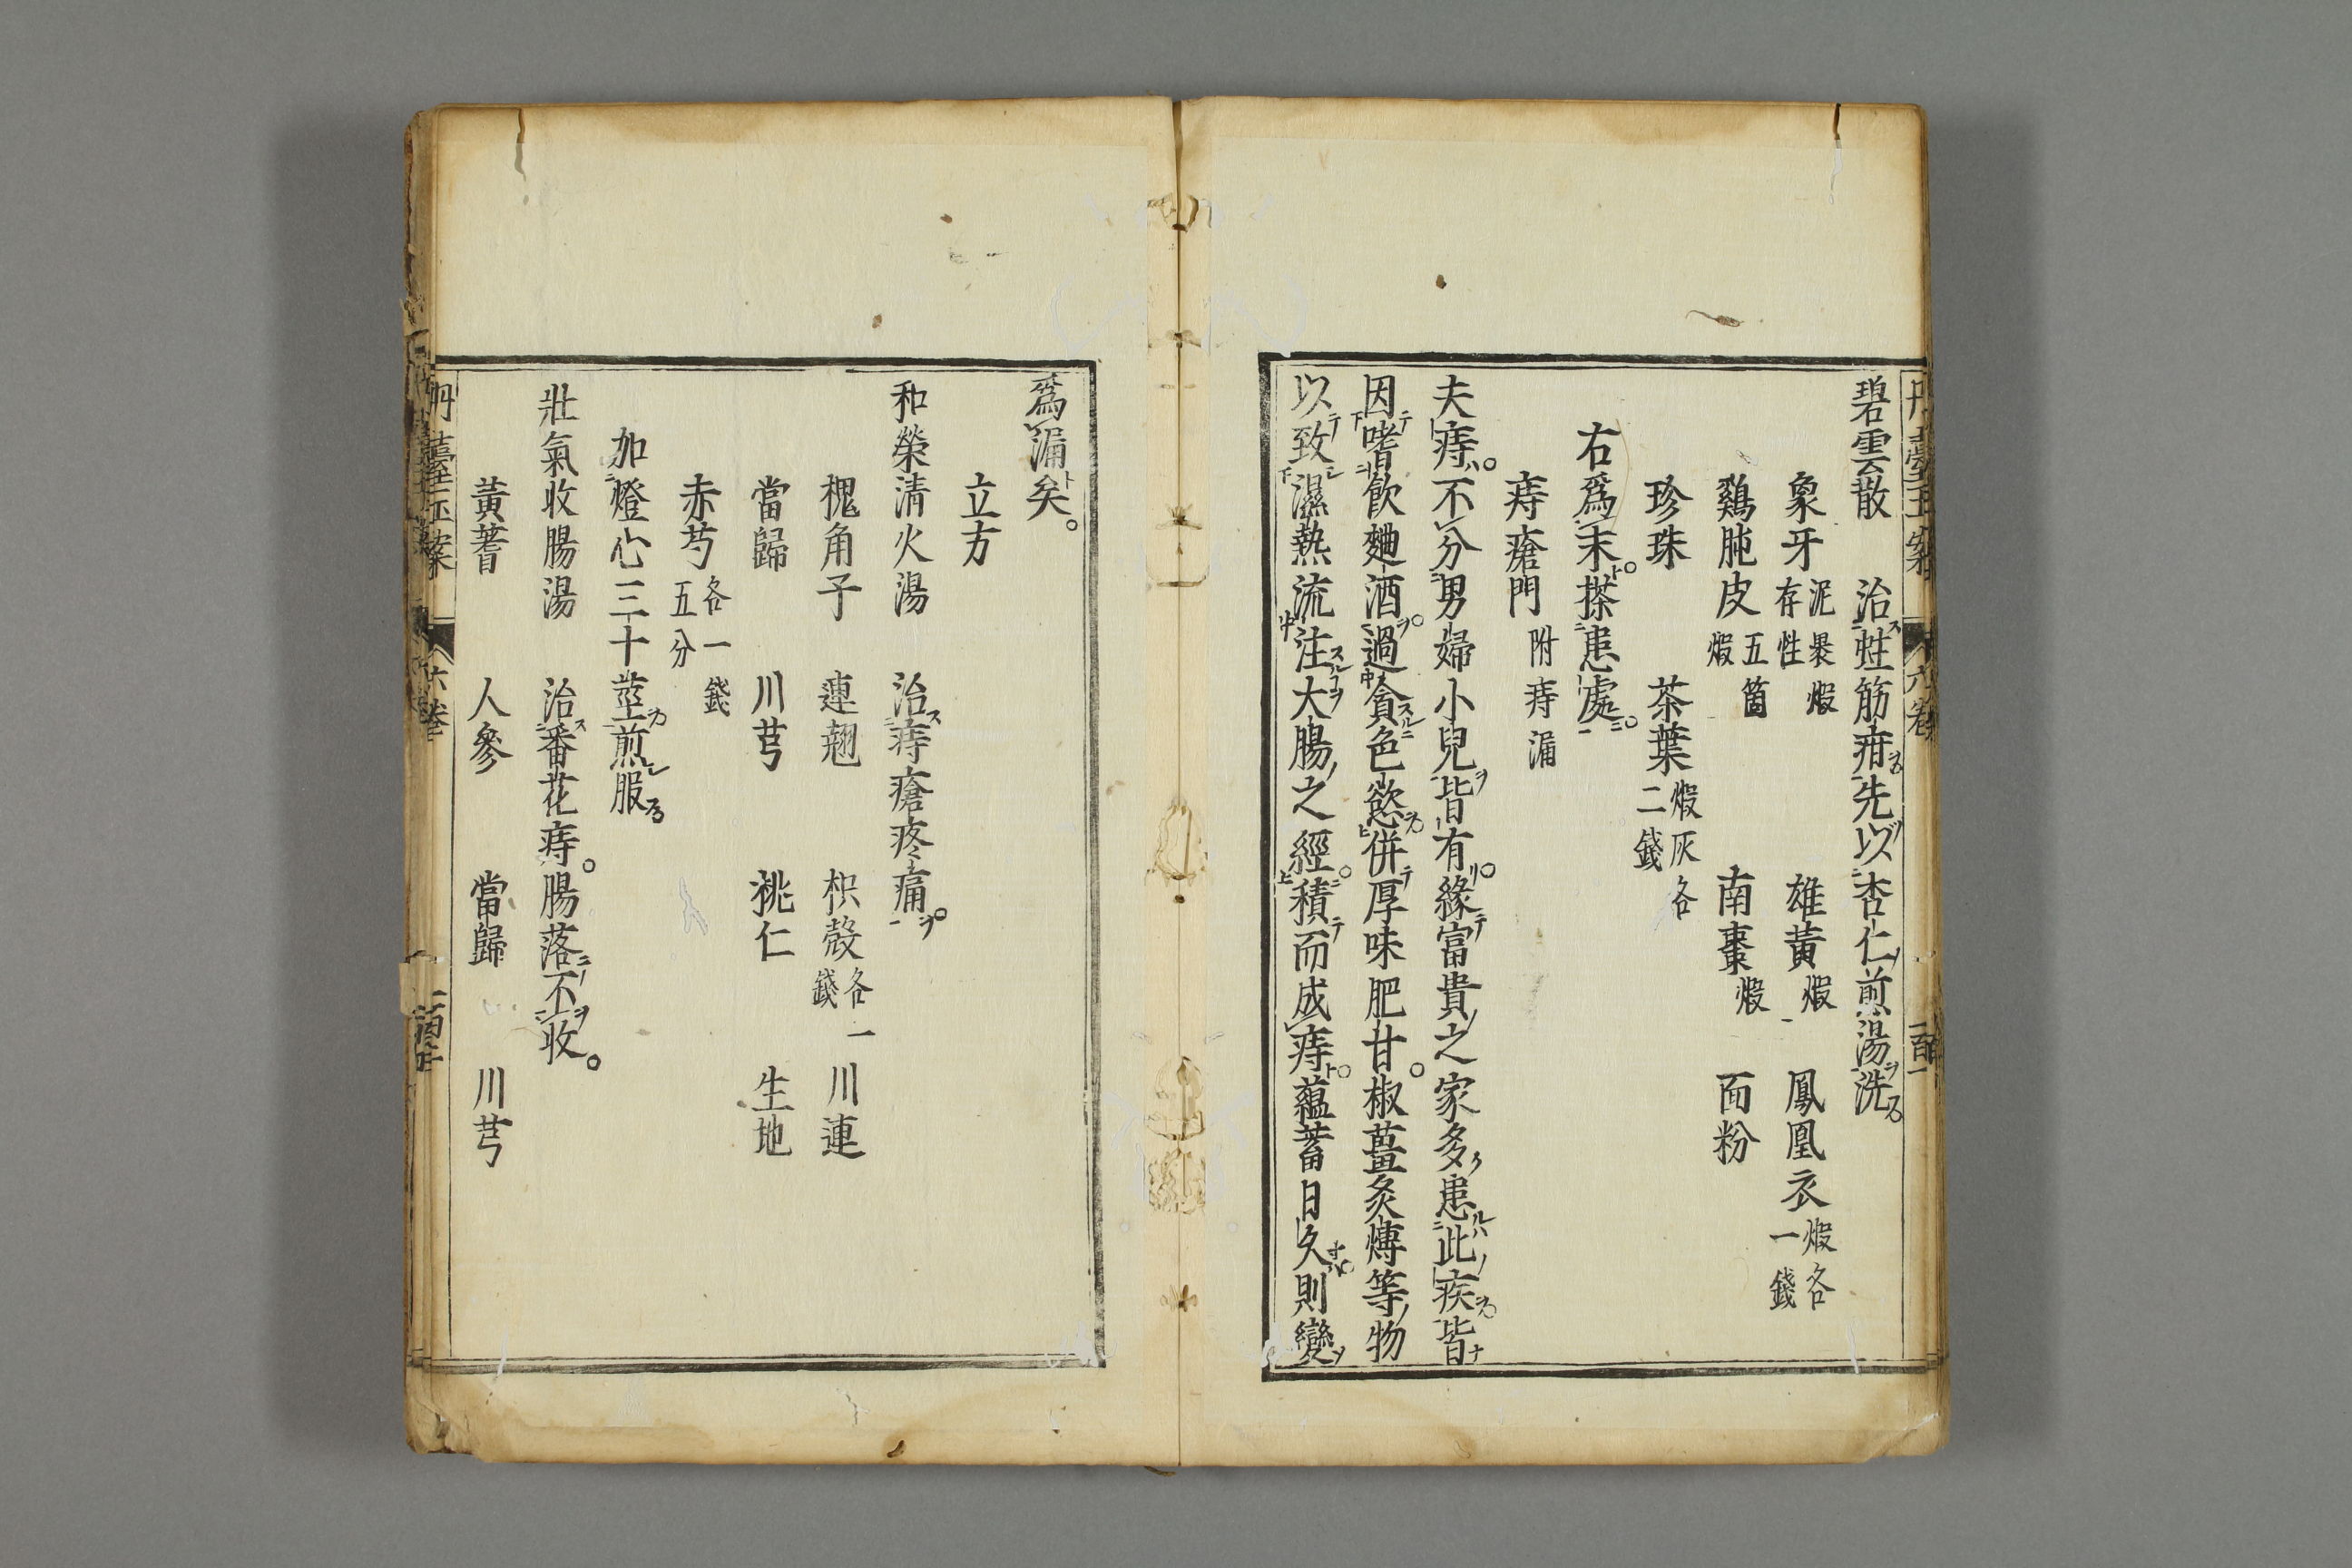 碧雲散　治蛀筋疳先以杏仁煎湯洗
象牙泥裹煆存性　雄黃煆　鳳凰衣煆各一錢
鷄肫皮五箇煆　南棗煆　面粉
珍珠　茶葉煆灰各二錢
右爲末搽患處
痔瘡門附痔漏
夫痔不分男婦小兒皆有緣富貴之家多患此疾皆
因嗜飲麯酒過貪色慾併厚味肥甘椒薑炙煿等物
以致濕熱流注大腸之經積而成痔蘊蓄日久則變
爲漏矣
立方
和榮清火湯　治痔瘡疼痛
槐角子　連翹　枳殼各一錢　川連
當歸　川芎　桃仁　生地
赤芍各一錢五分
加燈心三十莖煎服
壯氣收腸湯　治番花痔腸落不收
黃蓍　人參　當歸　川芎
丹臺玉案　六卷